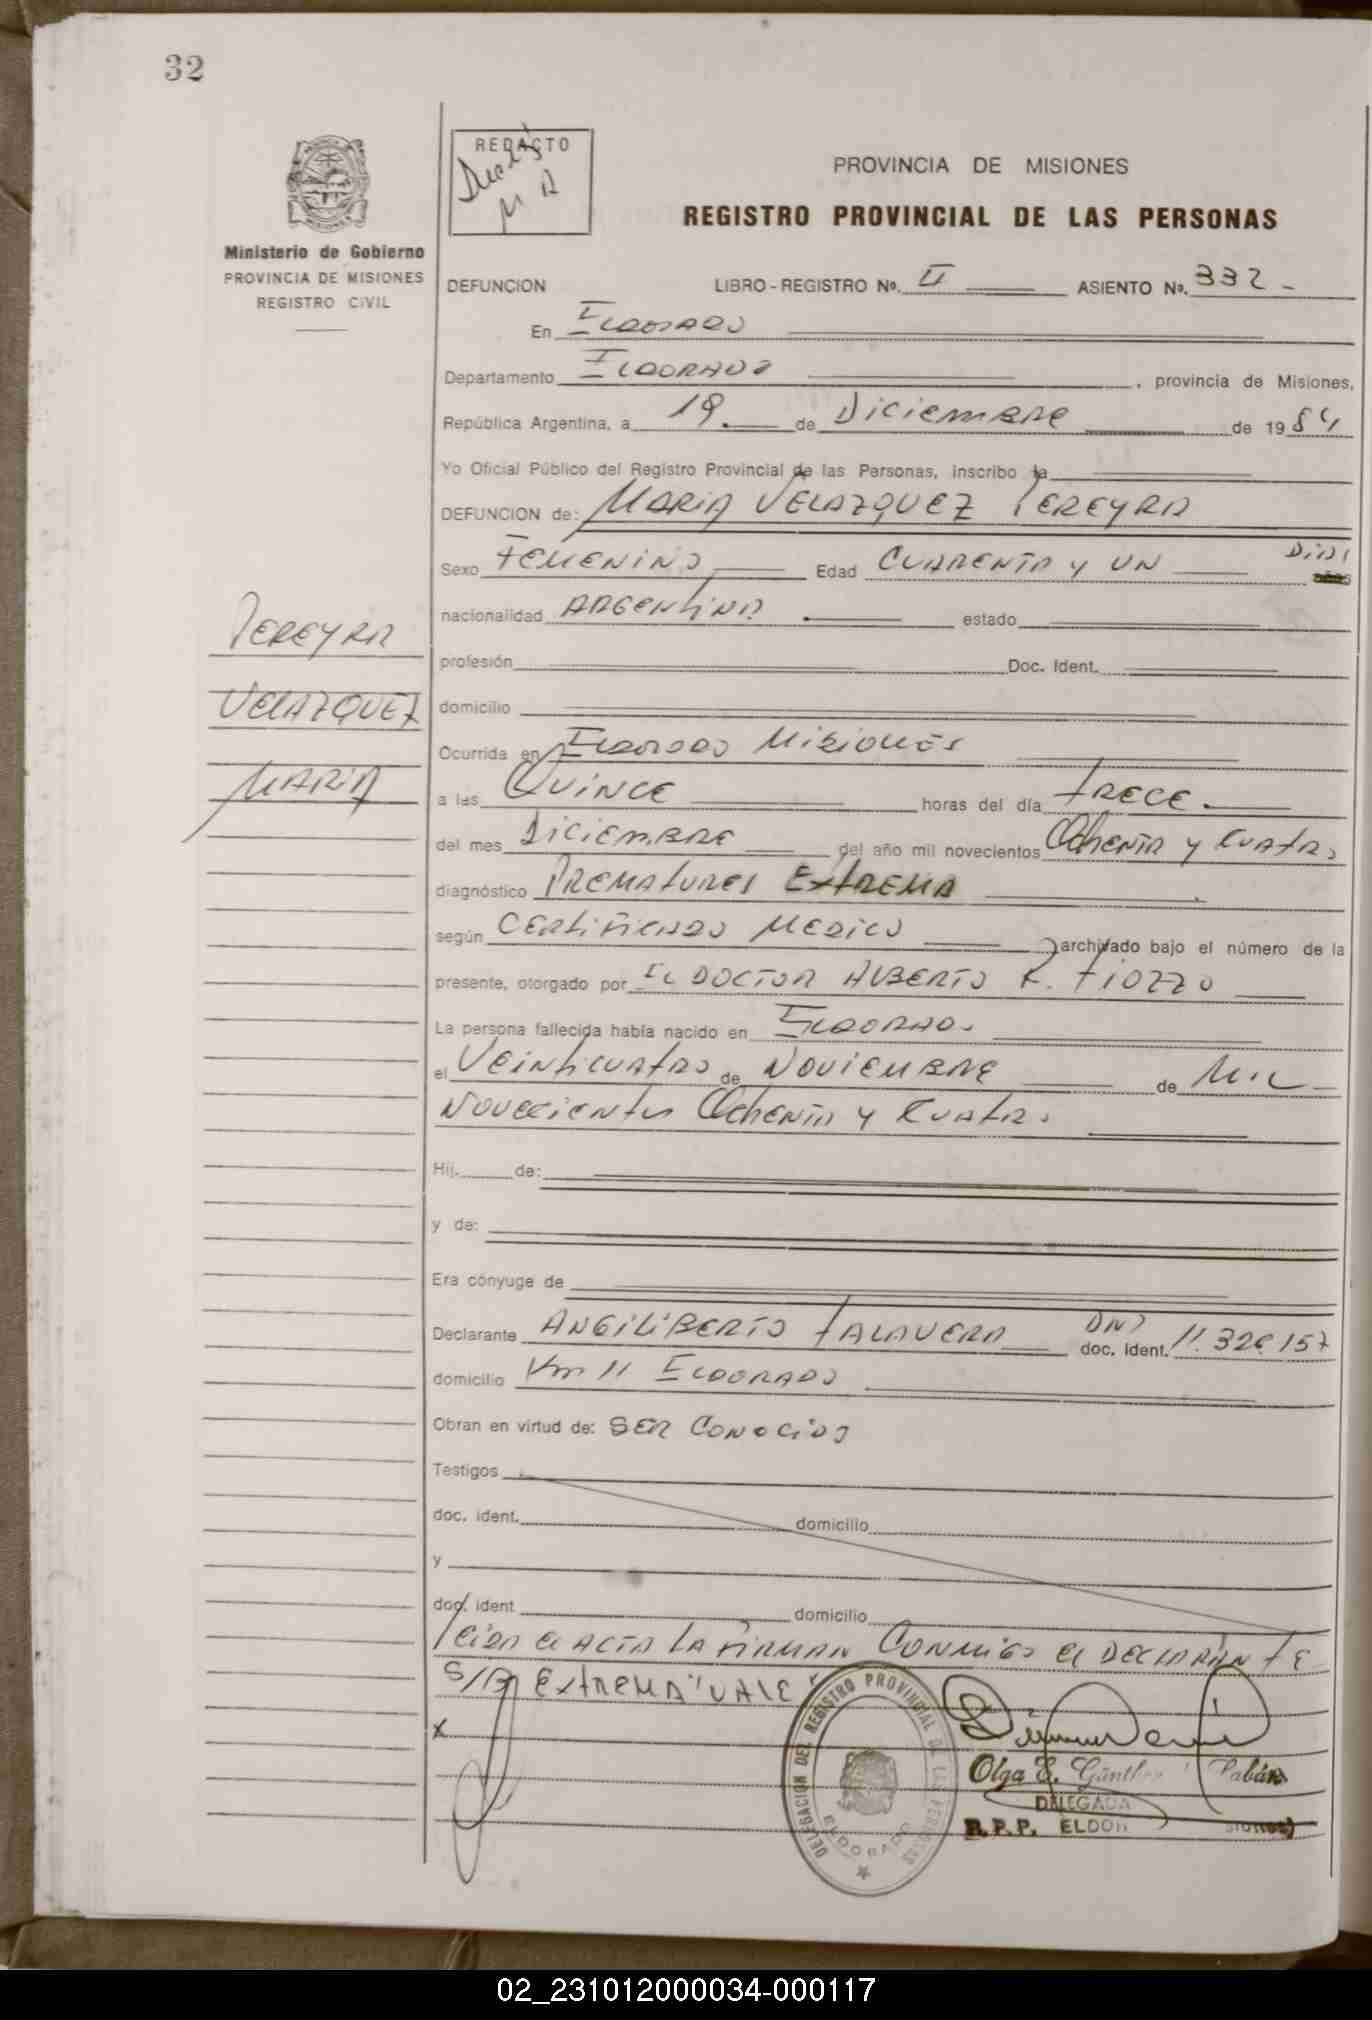 32
REDACTO
M A
PROVINCIA DE MISIONES
REGISTRO PROVINCIAL DE LAS PERSONAS
Ministerio de Gobierno
PROVINCIA DE MISIONES
REGISTRO CIVIL
DEFUNCION LIBRO-REGISTRO Nº. II ASIENTO Nº. 332-
En ELDORADO
Departamento ELDORADO, provincia de Misiones,
República Argentina, a 19. de DiCiEMBRE de 1984
Yo Oficial Público del Registro Provincial de las Personas, inscribo la
DEFUNCION de: MARiA VELAZQUEZ PEREYRA
Sexo FEMENINO Edad CUARENTA y UN DiAS
nacionalidad ARGENTiNA estado
profesión Doc. Ident.
domicilio
Ocurrida en ELDORADO MISIONES
a las QUiNCE horas del día tRECE.
del mes DiCiEMBRE del año mil novecientos OchENTA y CUAtRO
diagnóstico PREMAtURES EXtREMA
según CERtiFiCADO MEDiCO archivado bajo el número de la
presente, otorgado por EL DOCTOR ALBERTO R. FiOZZO
La persona fallecida había nacido en ELDORADO
el VEiNtiCUAtRO de NOViEMBRE de MiL
NOVECiENtOS OchENTA y CUAtRO
Hij. de:
y de:
Era cónyuge de
Declarante ANGiLiBERTO tALAVERA DNI doc. ident. 11.326.157
domicilio Km 11 ELDORADO
Obran en virtud de: SER CONOCiDO
Testigos
doc. ident. domicilio
y
doc. ident domicilio
lEiDA El ACTA LA FiRMAN CONMiGO El DECLARANtE
S/B EXtREMA "VALE"
x
PEREYRA
VELAZQUEZ
MARiA
DELEGACION DEL REGISTRO PROVINCIAL DE LAS PERSONAS
ELDORADO
Olga E. Günther Pabán
DELEGADA
R.P.P. ELDOR
02_231012000034-000117